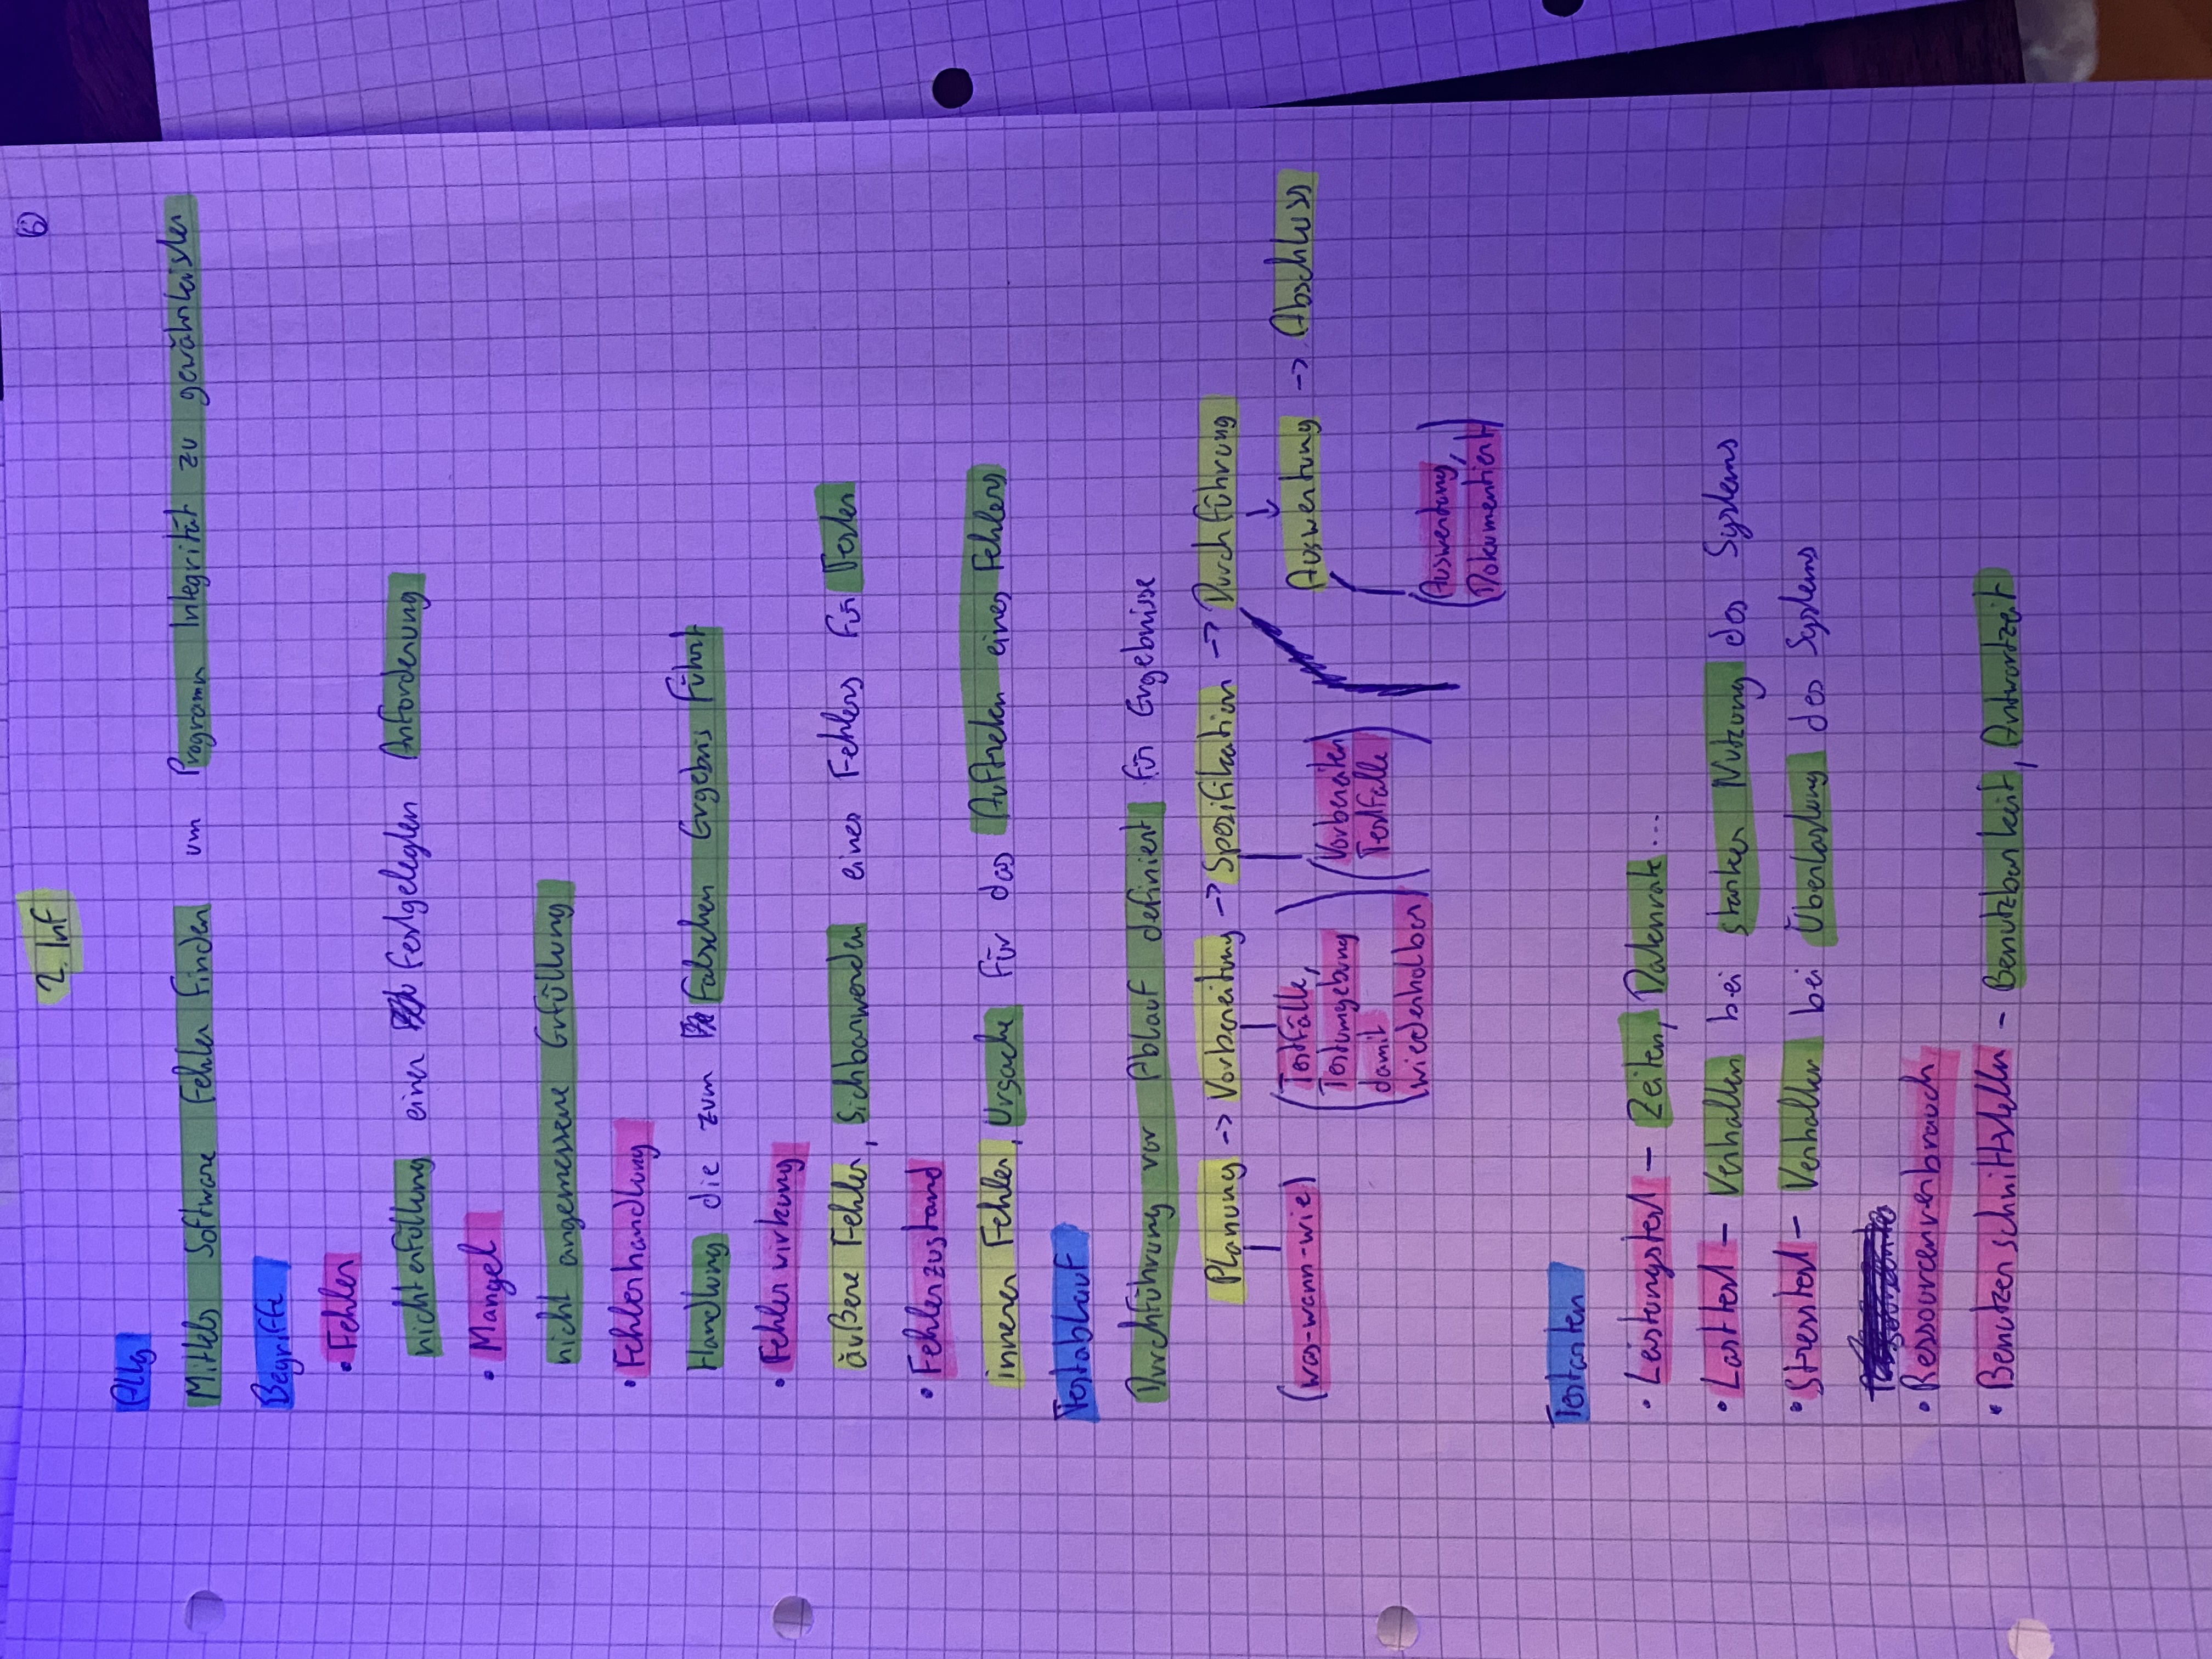 2. Inf
6
Allg
Mittels Software Fehler finden um Programm Integrität zu gewährleisten
Begriffe
• Fehler
nichterfüllung einer festgelegten Anforderung
• Mangel
nicht angemessene Erfüllung
• Fehlerhandlung
Handlung die zum Falschen Ergebnis führt
• Fehlerwirkung
äußere Fehler, Sichbarwerden eines Fehlers für Tester
• Fehlerzustand
innerer Fehler, Ursache für das Auftreten eines Fehlers
Testablauf
Durchführung vor Ablauf definiert für Ergebnisse
Planung -> Vorbereitung -> Spezifikation -> Durchführung
(was-wann-wie)
(Testfälle,
Testumgebung
damit
wiederholbar)
(Vorbereiten
Testfälle)
Auswertung -> Abschluss
(Auswertung,
Dokumentiert)
Testarten
• Leistungstest – Zeiten, Datenrate...
• Lasttest – Verhalten bei starker Nutzung des Systems
• Stresstest – Verhalten bei Überlastung des Systems
• Ressourcenverbrauch
• Benutzerschnittstellen – Benutzbarkeit, Antwortzeit